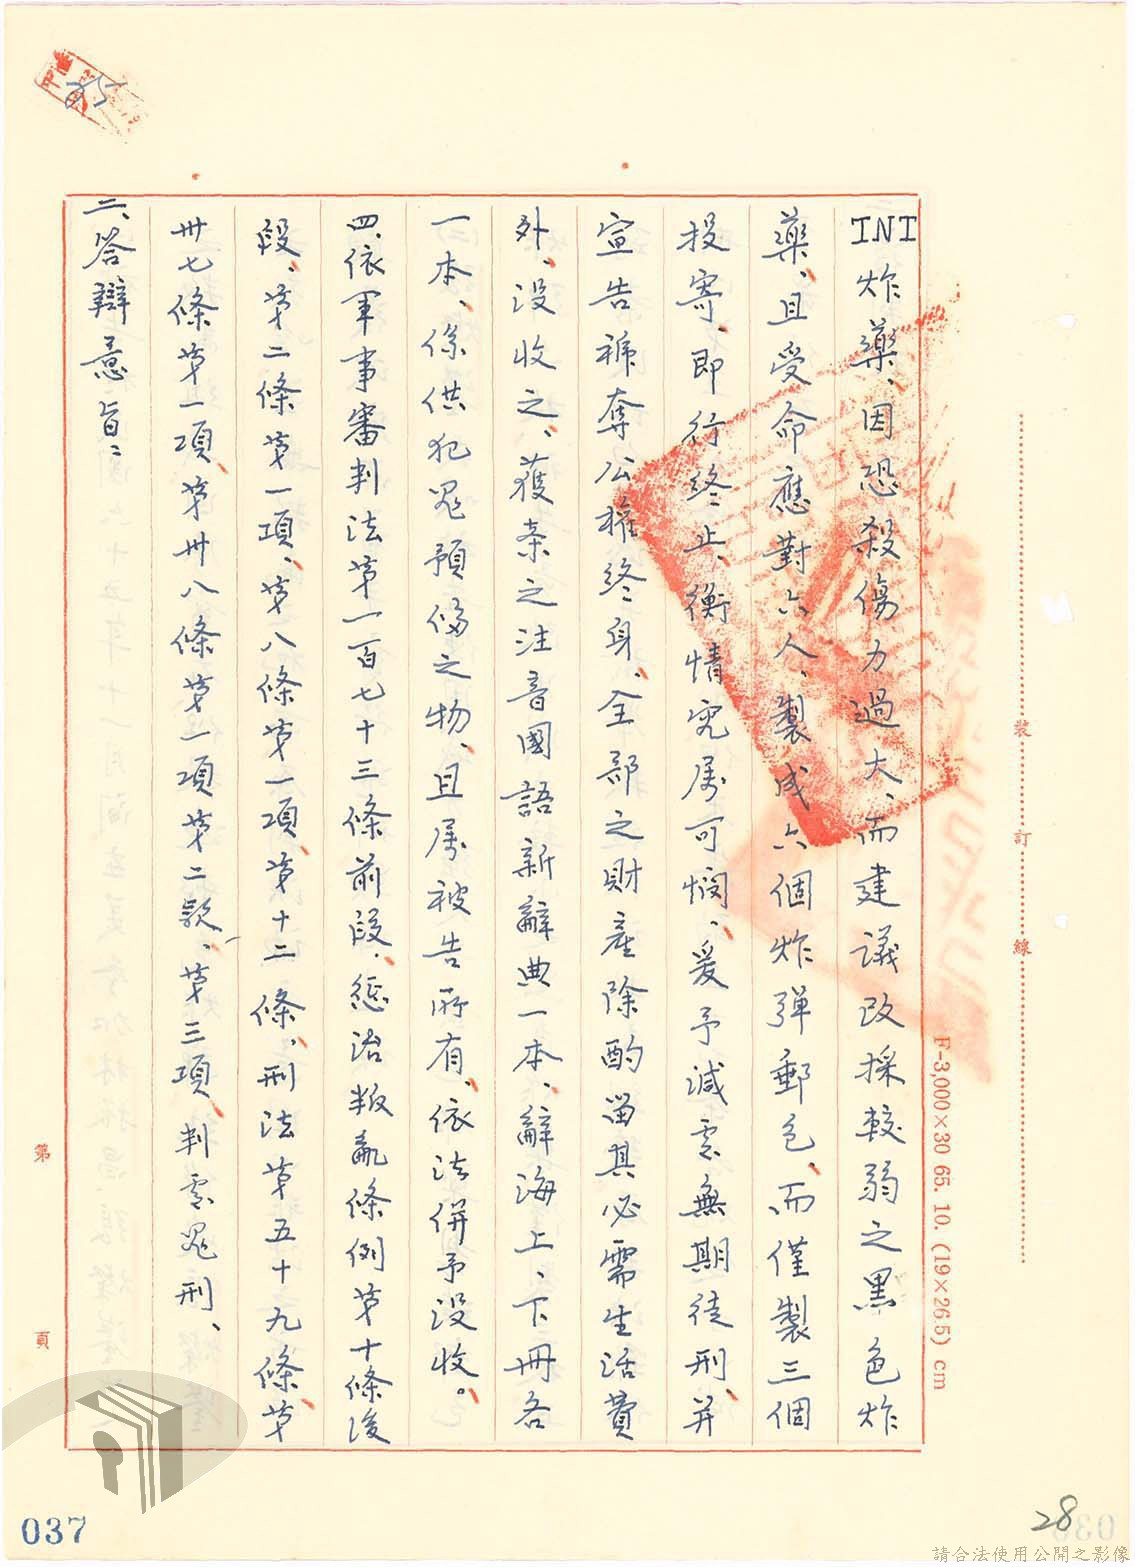 TNT炸藥、因恐殺傷力過大、而建議改採較弱之黑色炸
藥、且受命應對六人、製成六個炸彈郵包、而僅製三個
投寄、即行終止、衡情究属可憫、爰予減處無期徒刑、并
宣告褫奪公權終身、全部之財產除酌留其必需生活費
外、没收之、獲案之注音國語新辭典一本、辭海上、下冊各
一本、係供犯罪預備之物、且属被告所有、依法併予没收。
四、依軍事審判法第一百七十三條前段、懲治叛亂條例第十條後
段、第二條第一項、第八條第一項、第十二條、刑法第五十九條、第
卅七條第一項、第卅八條第一項第二款、第三項、判處罪刑、
二、答辯意旨：
裝訂線
F-3,000×30 65. 10. (19×26.5) cm
第 頁
037
28
請合法使用公開之影像